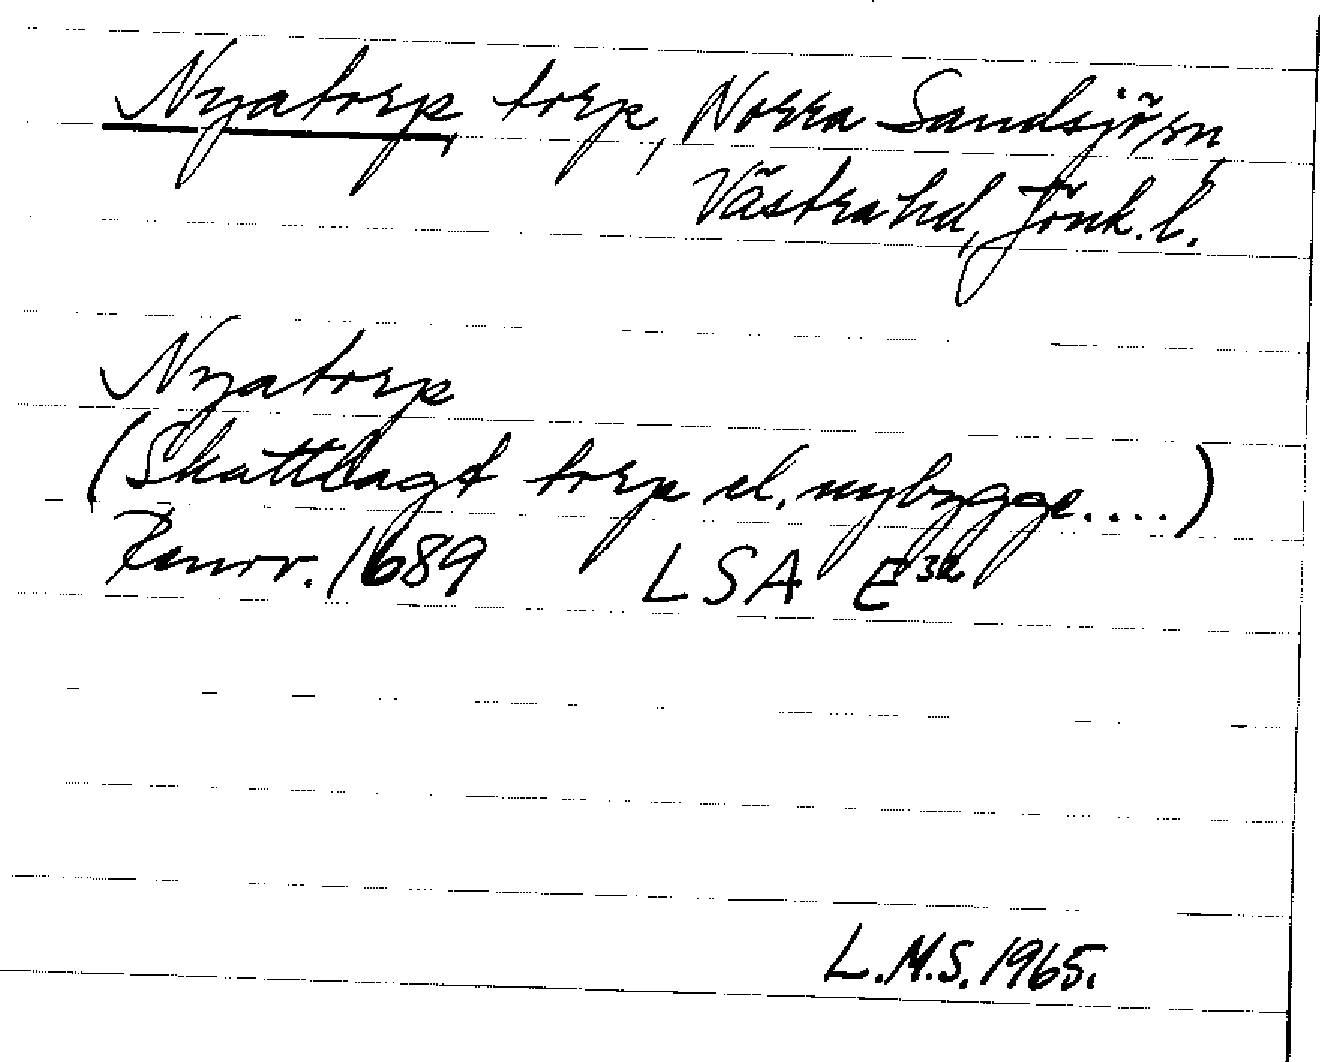 Nyatorp, torp, Norra Sandsjö sn,
Västra hd, Jönk. l.
Nyatorp
(Skattlagt torp el. nybygge....)
Renov. 1689 LSA E³ᵃ
L.M.S. 1965.